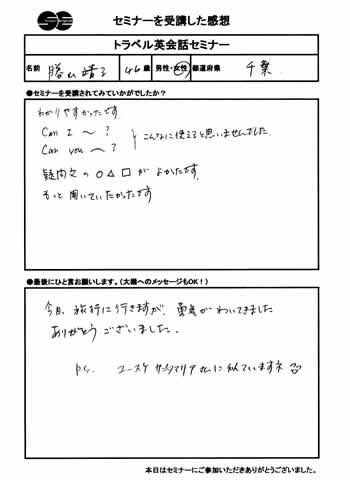 セミナーを受講した感想
トラベル英会話セミナー
名前 勝山 靖子 46歳 男性・女性 都道府県 千葉
●セミナーを受講されてみていかがでしたか?
わかりやすかったです
Can I ~ ?
Can you ~ ?
こんなに使えると思いませんでした。
疑問文の ○△□が よかったです。
もっと 聞いていたかったです
●最後にひと言お願いします。(大橋へのメッセージもOK!)
今月、旅行に行きますが、勇気がわいてきました
ありがとうございました。
P.S. ユースケ サンタマリア さんに似ていますネ
本日はセミナーにご参加いただきありがとうございました。